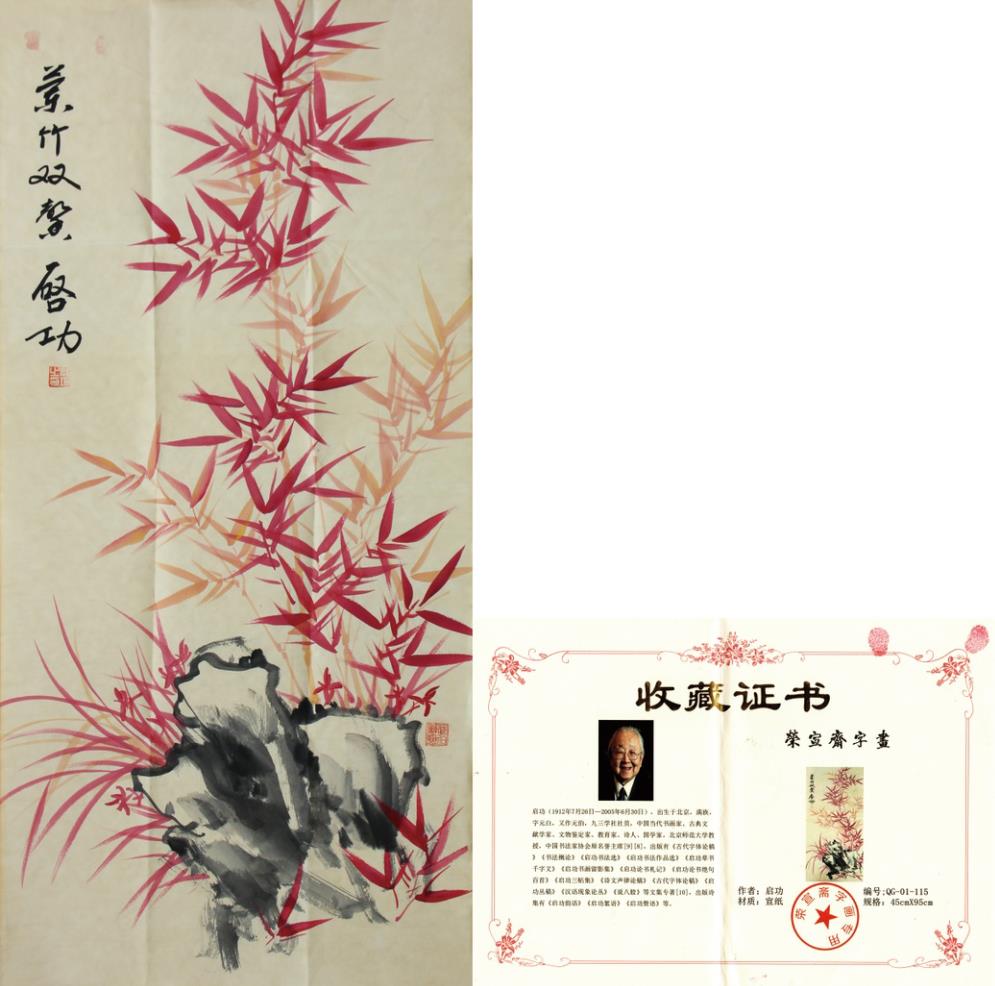 蘭竹双馨 启功
收藏证书
荣宣齋字畫
启功（1912年7月26日—2005年6月30日），出生于北京，满族，
字元白，又作元伯，九三学社社员，中国当代书画家、古典文
献学家、文物鉴定家、教育家、诗人、国学家，北京师范大学教
授，中国书法家协会原名誉主席[9][8]，出版有《古代字体论稿
》《书法概论》《启功书法选》《启功书法作品选》《启功草书
千字文》《启功书画留影集》《启功论书札记》《启功论书绝句
百首》《启功三帖集》《诗文声律论稿》《古代字体论稿》《启
功丛稿》《汉语现象论丛》《说八股》等文集专著[10]。出版诗
集有《启功韵语》《启功絮语》《启功赘语》等。
作者：启功
材质：宣纸
编号:QG-01-115
规格：45cmX95cm
荣宣斋字画专用